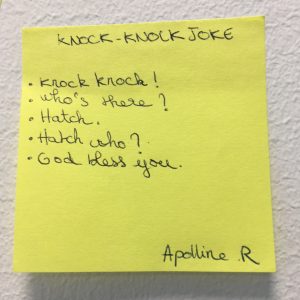 KNOCK-KNOCK JOKE
• Knock knock!
• Who's there?
• Hatch.
• Hatch who?
• God bless you.
Apolline R